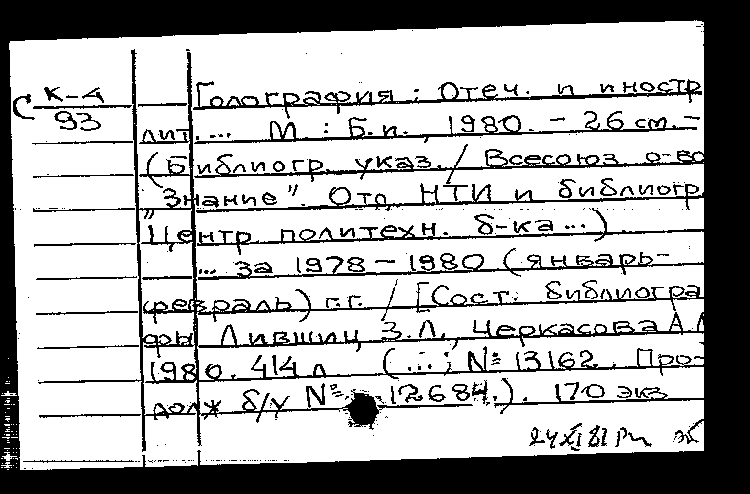 С К-4
93
Голография : Отеч. и иностр
лит. ... М. : Б.и., 1980. - 26 см. -
(Библиогр. указ. / Всесоюз. о-во
"Знание". Отд. НТИ и библиогр.
Центр. политехн. б-ка ...)
... за 1978 - 1980 (январь-
февраль) г.г. / [Сост. библиогра
фы Лившиц З.Л., Черкасова А.
1980. 414 л (...; № 13162. Про-
долж б/у № 12684.). 170 экз
24 XI 81